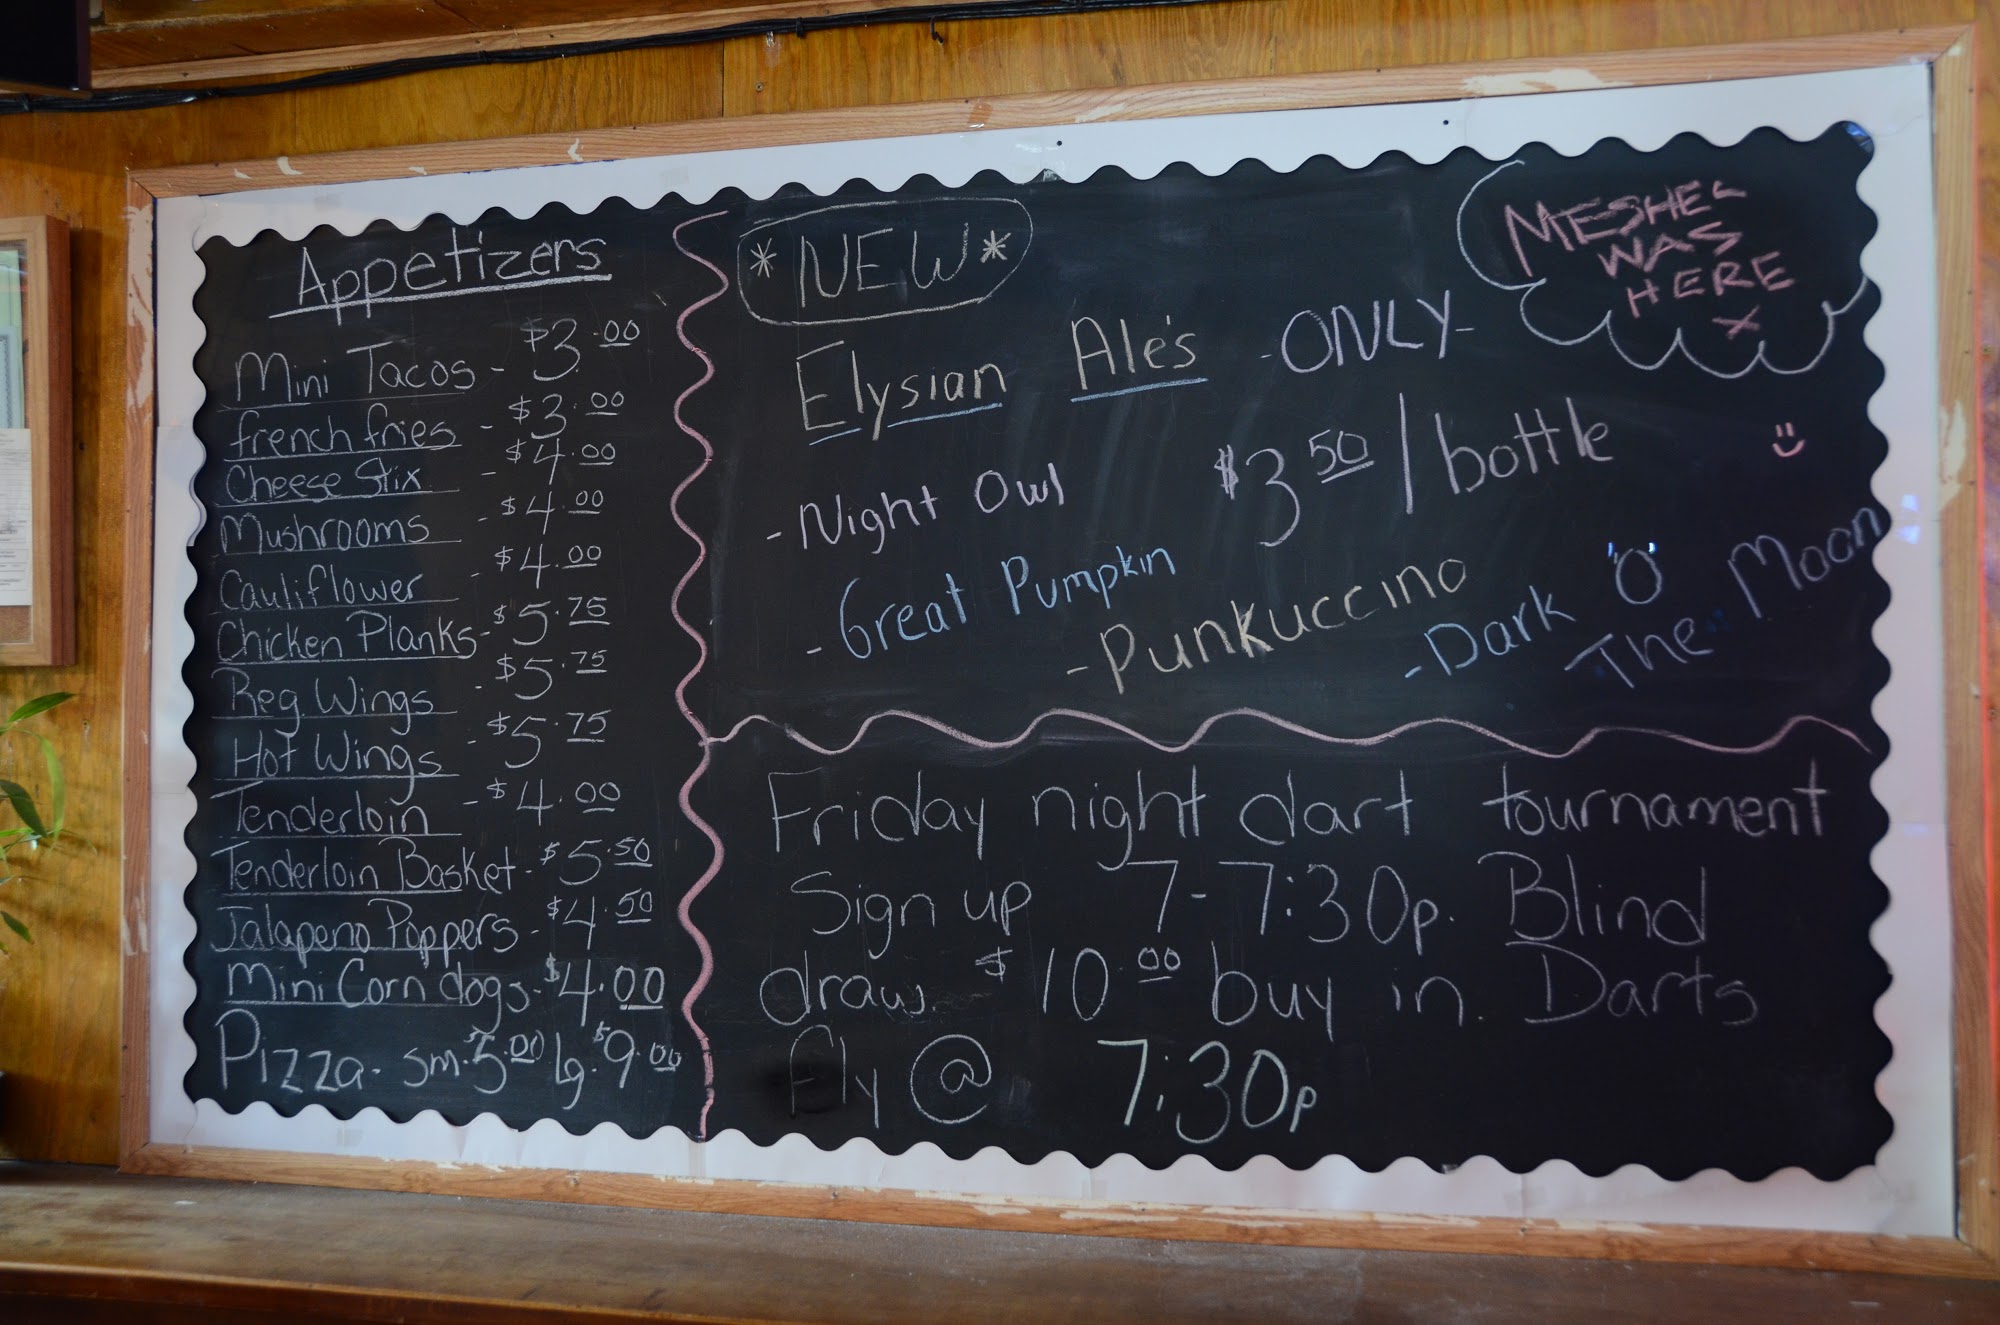 Appetizers
Mini Tacos - $3.00
french fries - $3.00
Cheese Stix - $4.00
Mushrooms - $4.00
Cauliflower - $4.00
Chicken Planks - $5.75
Reg. Wings - $5.75
Hot Wings - $5.75
Tenderloin - $4.00
Tenderloin Basket - $5.50
Jalapeno Poppers - $4.50
Mini Corn dogs - $4.00
Pizza - sm. $5.00 lg. $9.00
*NEW*
Elysian Ale's - ONLY -
- Night Owl $3.50 / bottle
- Great Pumpkin
- Punkuccino
- Dark 'O'
The Moon
MESHEL
WAS
HERE
X
Friday night dart tournament
Sign up 7-7:30p. Blind
draw. $10.00 buy in. Darts
fly @ 7:30p